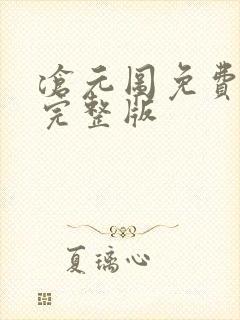 滄元圖免費
完整版
夏璃心